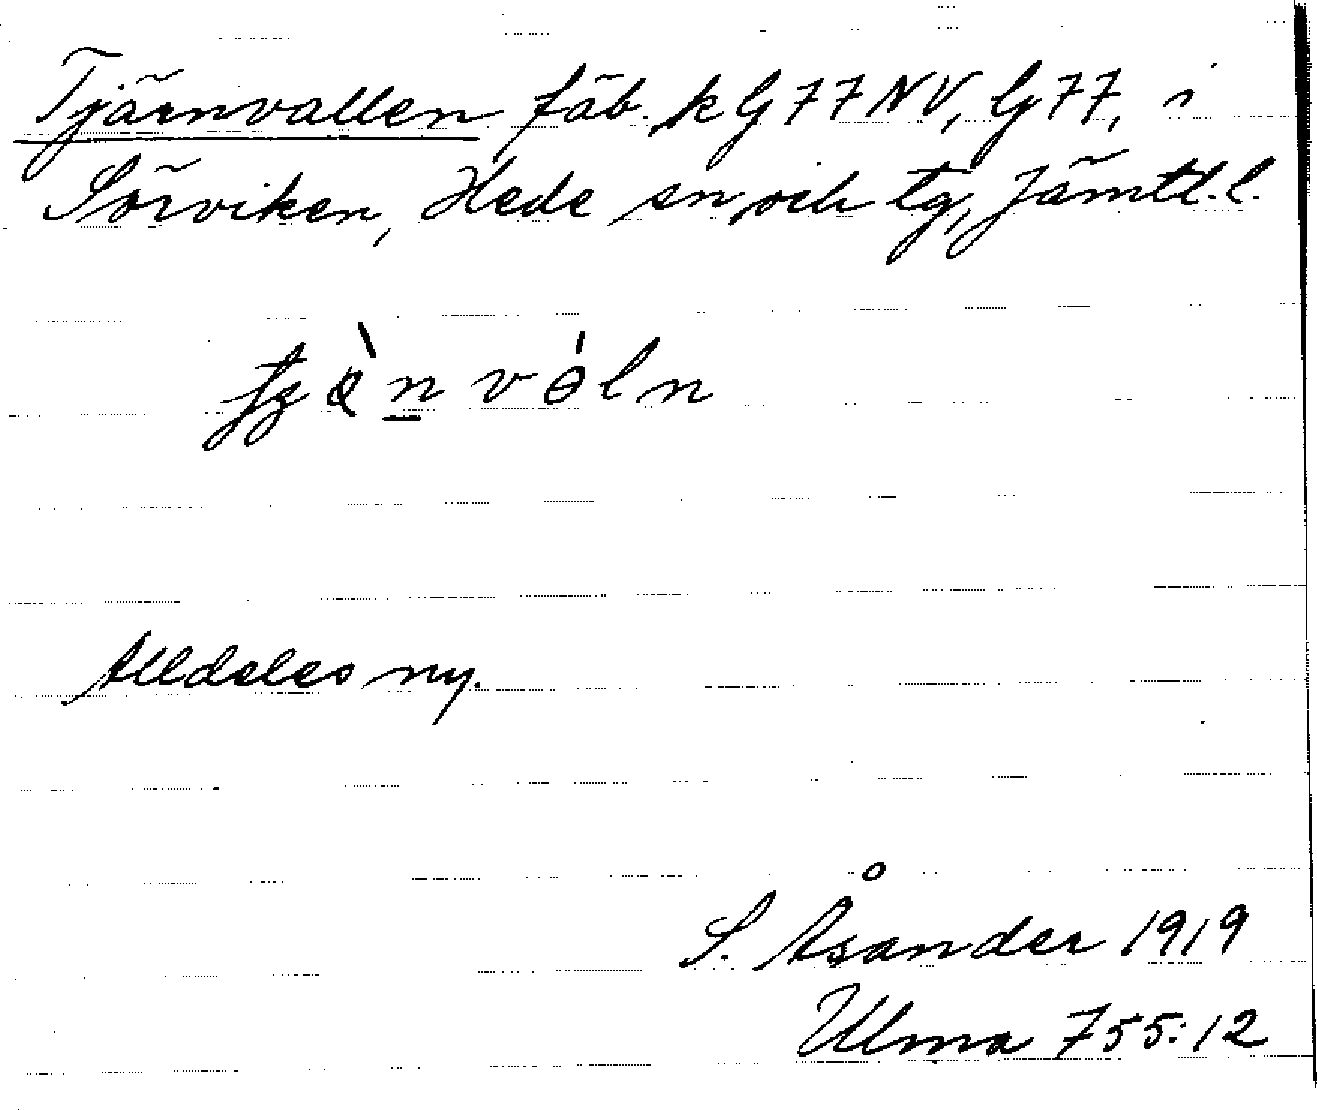 Tjärnvallen fäb. k G 77 NV, G 77, i
Sörviken, Hede sn och tg, Jämtl. l.
vòln
Alldeles ny.
S. Åsander 1919
Ulma 755:12